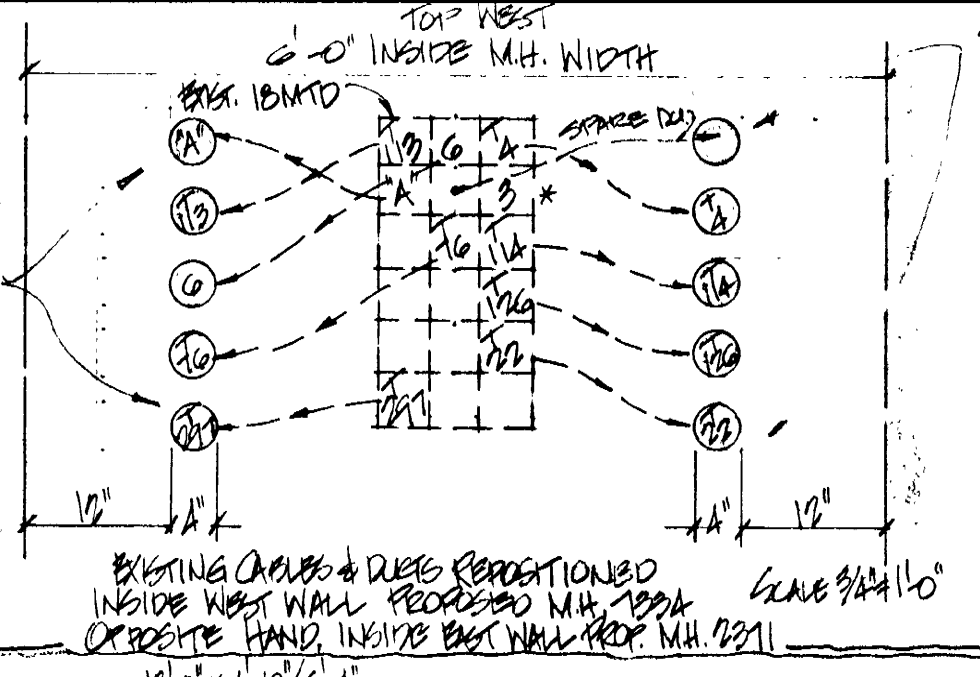 TOP WEST
6'-0" INSIDE M.H. WIDTH
EXIST. 18MTD
SPARE
"A"
T13
6
T6
T297
T13 6 T4
"A" 3 *
T6 T14
T126
T22
T297
T4
T14
T126
T22
12" 4" 4" 12"
EXISTING CABLES & DUCTS REPOSITIONED
INSIDE WEST WALL PROPOSED M.H. 7334
OPPOSITE HAND, INSIDE EAST WALL PROP. M.H. 2371
SCALE 3/4"=1'-0"